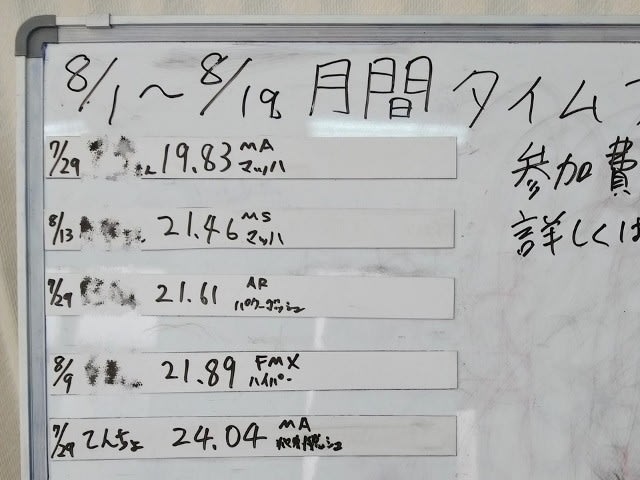 8/1〜8/19 月間タイム
参加費
詳しくは
7/29 19.83 MA マッハ
8/13 21.46 MS マッハ
7/29 21.61 AR パワーダッシュ
8/9 21.89 FMX ハイパー
7/29 てんちょ 24.04 MA